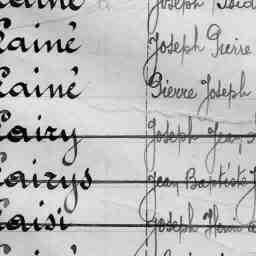 Lainé Joseph
Lainé Joseph Pierre
Lainé Pierre Joseph
Lairy Joseph Jean
Lairys Jean Baptiste
Laisi Joseph Henri